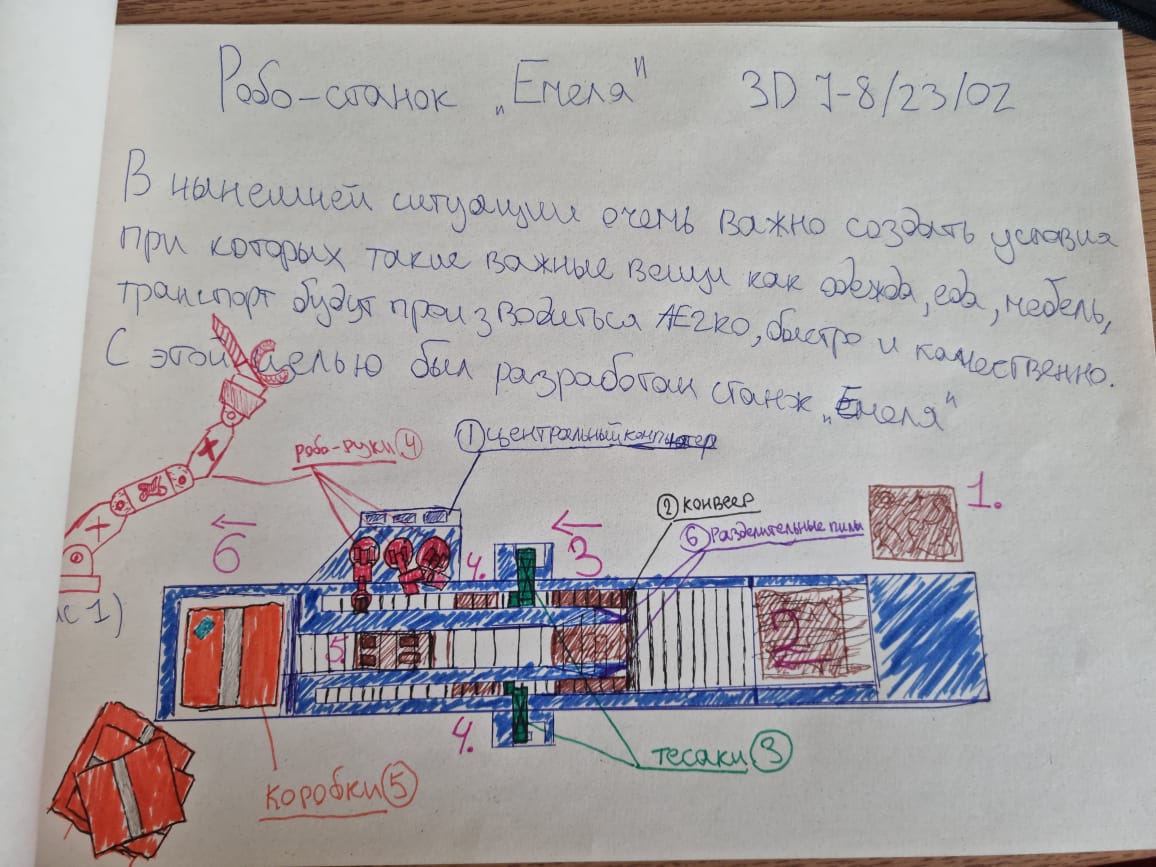 Робо-станок „Емеля" 3D J-8/23/02
В нынешней ситуации очень важно создать условия
при которых такие важные вещи как одежда, еда, мебель,
транспорт будут производиться легко, быстро и качественно.
С этой целью был разработан станок „Емеля"
робо-руки 4
1 центральный компьютер
2 конвеер
6 Разделительные пилы
1.
6
3
4.
5.
2
4.
тесаки 3
коробки 5
с 1)